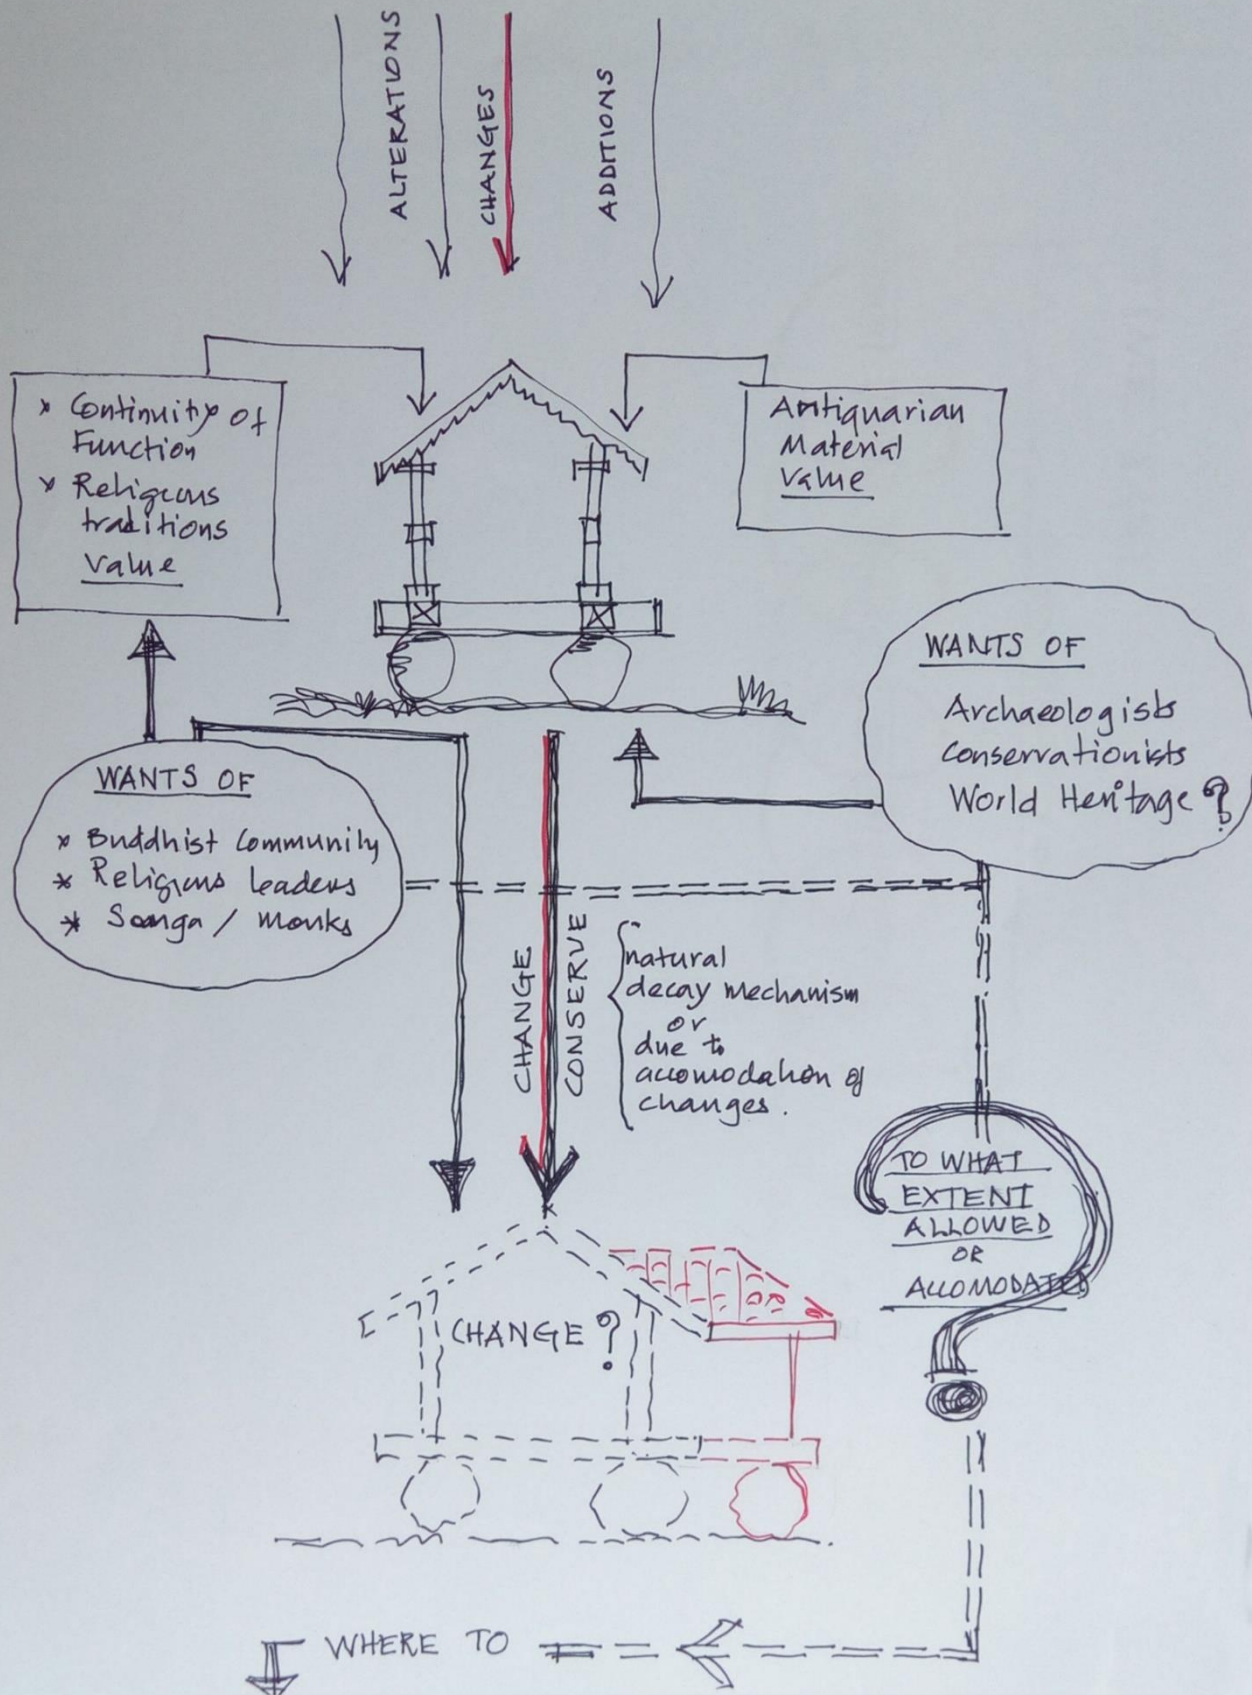 ALTERATIONS
CHANGES
ADDITIONS
x Continuity of
Function
x Religious
traditions
Value
Antiquarian
Material
Value
WANTS OF
Archaeologists
Conservationists
World Heritage ?
WANTS OF
x Buddhist Community
* Religious leaders
* Sanga / monks
CHANGE
CONSERVE
natural
decay mechanism
or
due to
accomodation of
changes.
TO WHAT
EXTENT
ALLOWED
OR
ACCOMODATED
CHANGE ?
WHERE TO